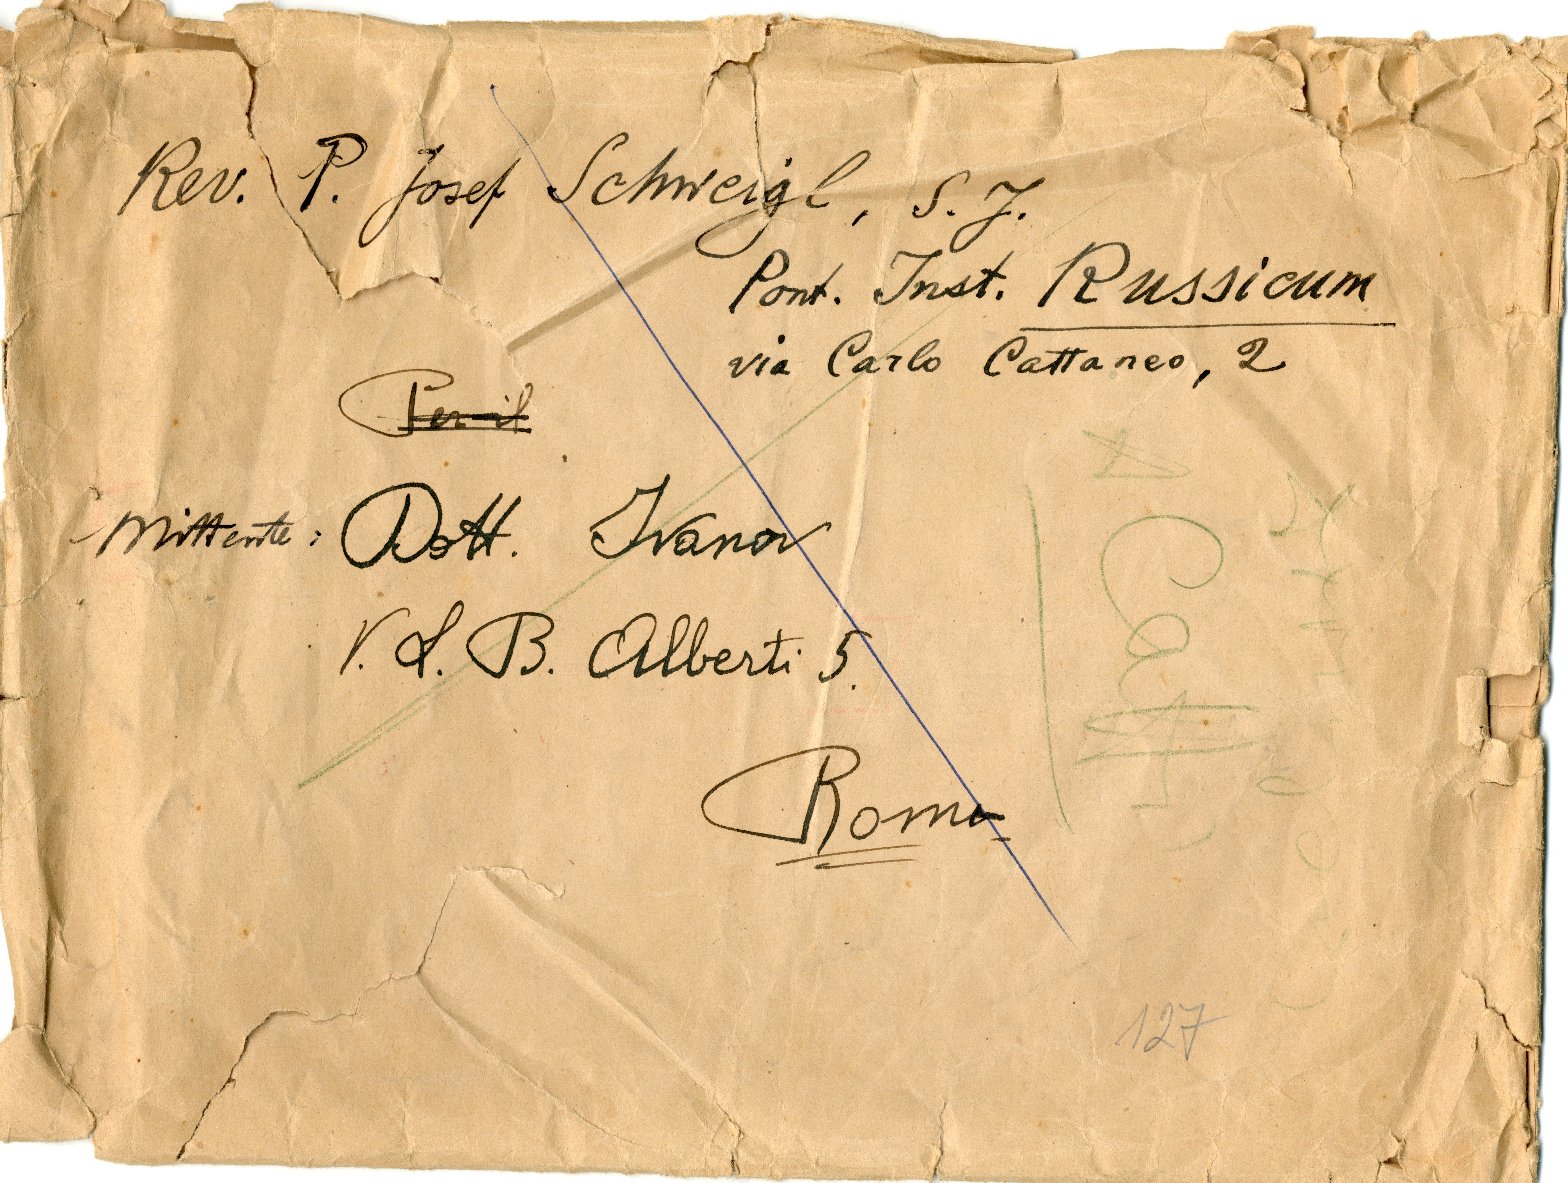 Rev. P. Josef Schweigl, S. J.
Pont. Inst. Russicum
via Carlo Cattaneo, 2
Per il
Mittente: Dott. Ivanov
V. L. B. Alberti 5.
Roma
127